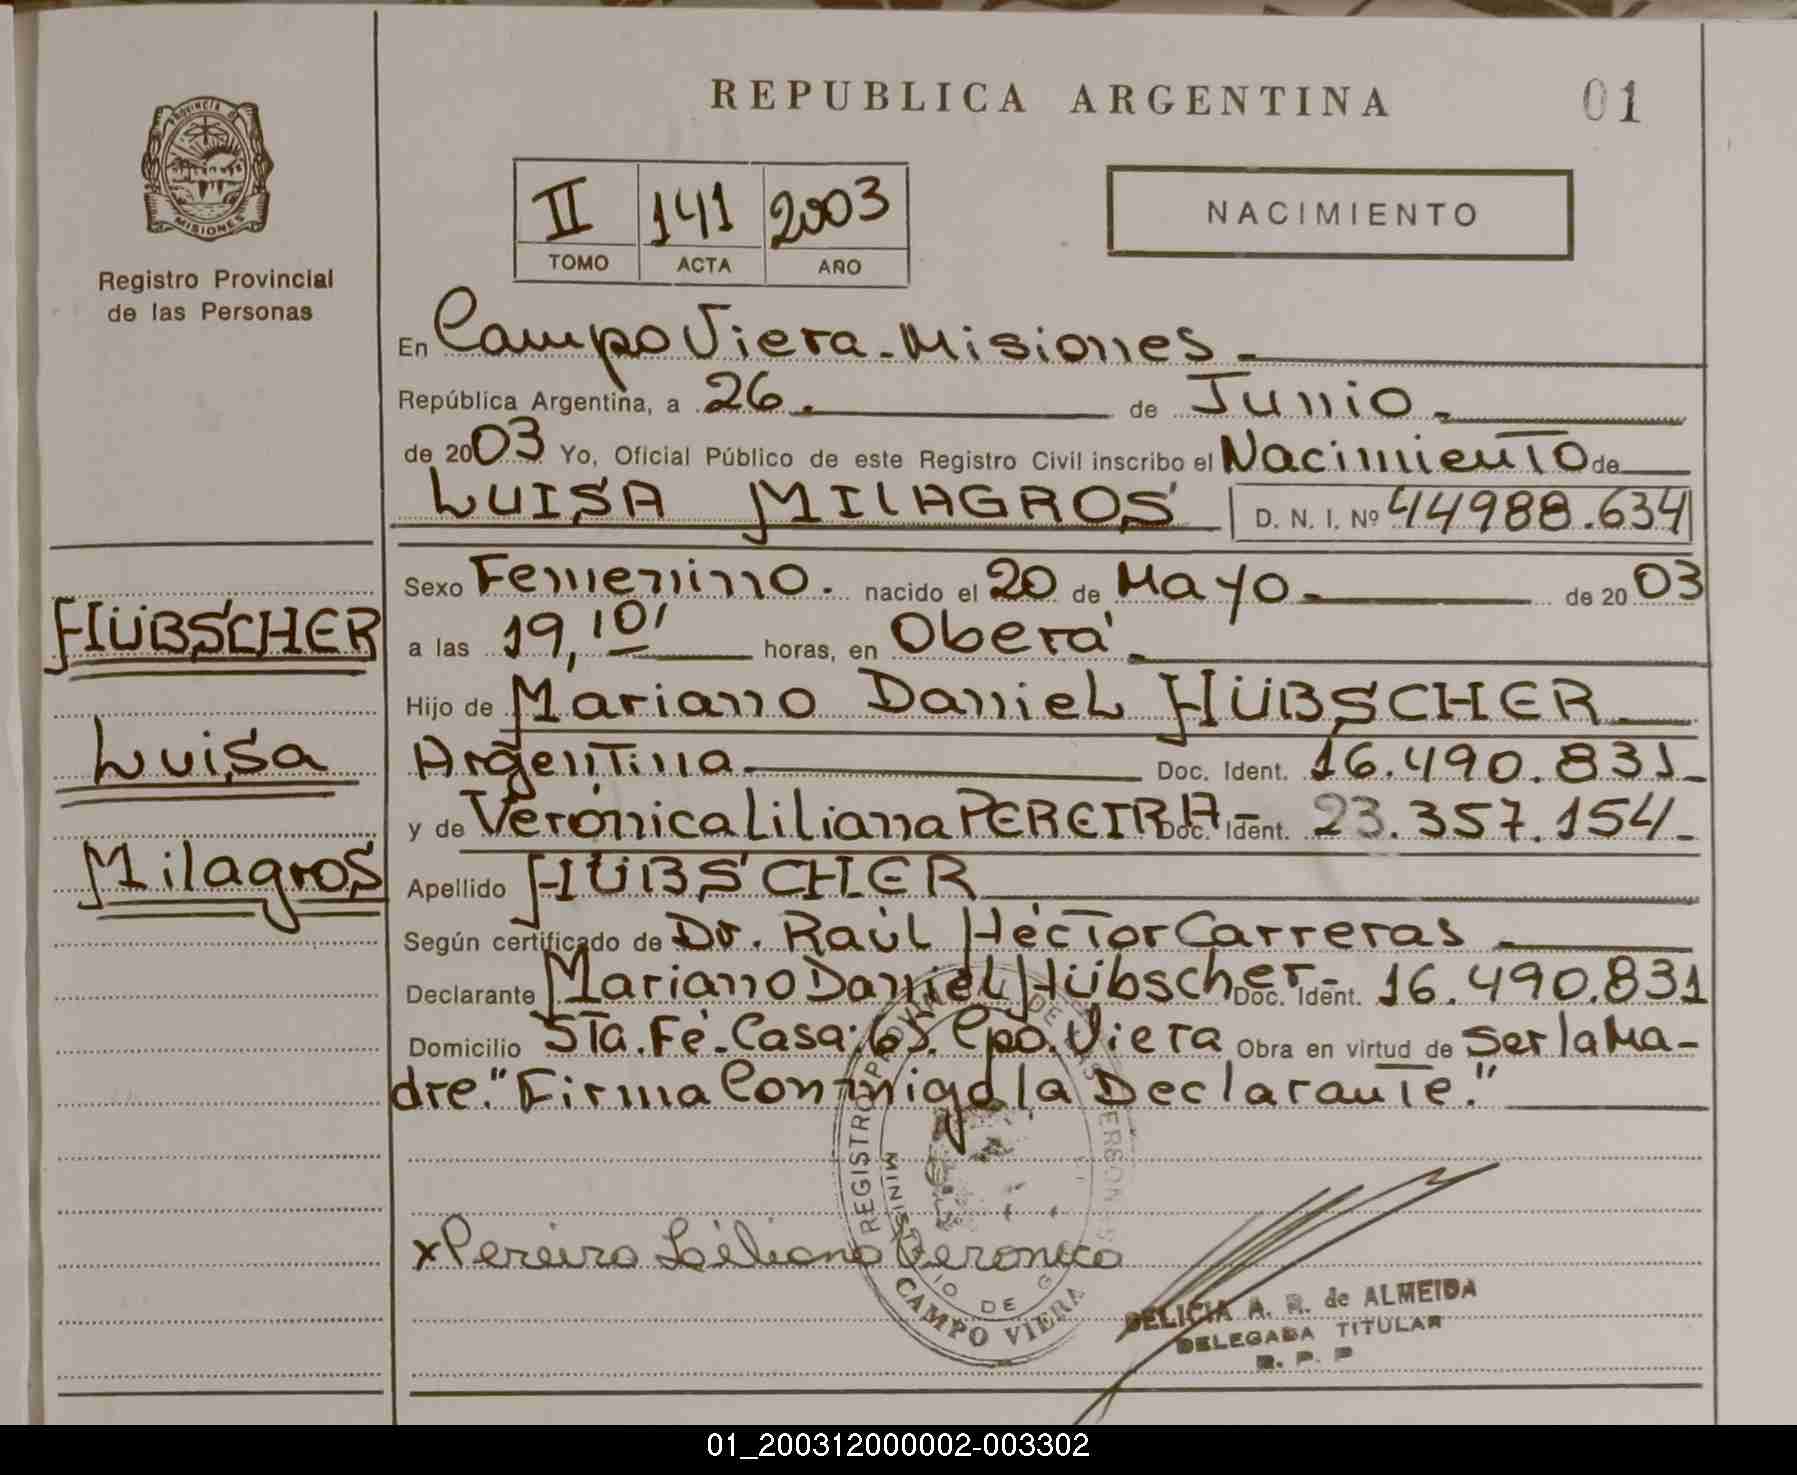 REPUBLICA ARGENTINA
01
PROVINCIA DE MISIONES
Registro Provincial
de las Personas
II 141 2003
TOMO ACTA AÑO
NACIMIENTO
En Campo Viera - Misiones -
República Argentina, a 26 . de Junio -
de 2003 Yo, Oficial Público de este Registro Civil inscribo el Nacimiento de
LUISA MILAGROS D. N. I. Nº 44988.634
Sexo Femenino. nacido el 20 de Mayo. de 2003
a las 19,10' horas, en Oberá.
Hijo de Mariano Daniel HÜBSCHER
Argentina Doc. Ident. 16.490.831-
y de Verónica Liliana PEREIRA- Doc. Ident. 23.357.154-
Apellido HÜBSCHER
Según certificado de Dr. Raúl Héctor Carreras -
Declarante Mariano Daniel Hübscher- Doc. Ident. 16.490.831
Domicilio Sta. Fé - Casa: 65. Cpo. Viera Obra en virtud de Ser la Ma-
dre." Firma Conmigo la Declarante."
HÜBSCHER
Luisa
Milagros
x Pereira Liliana Veronica
REGISTRO PROVIN DE LAS PERSONAS
MINISTERIO DE G
CAMPO VIERA
DELICIA A. R. de ALMEIDA
DELEGADA TITULAR
R. P. P
01_200312000002-003302